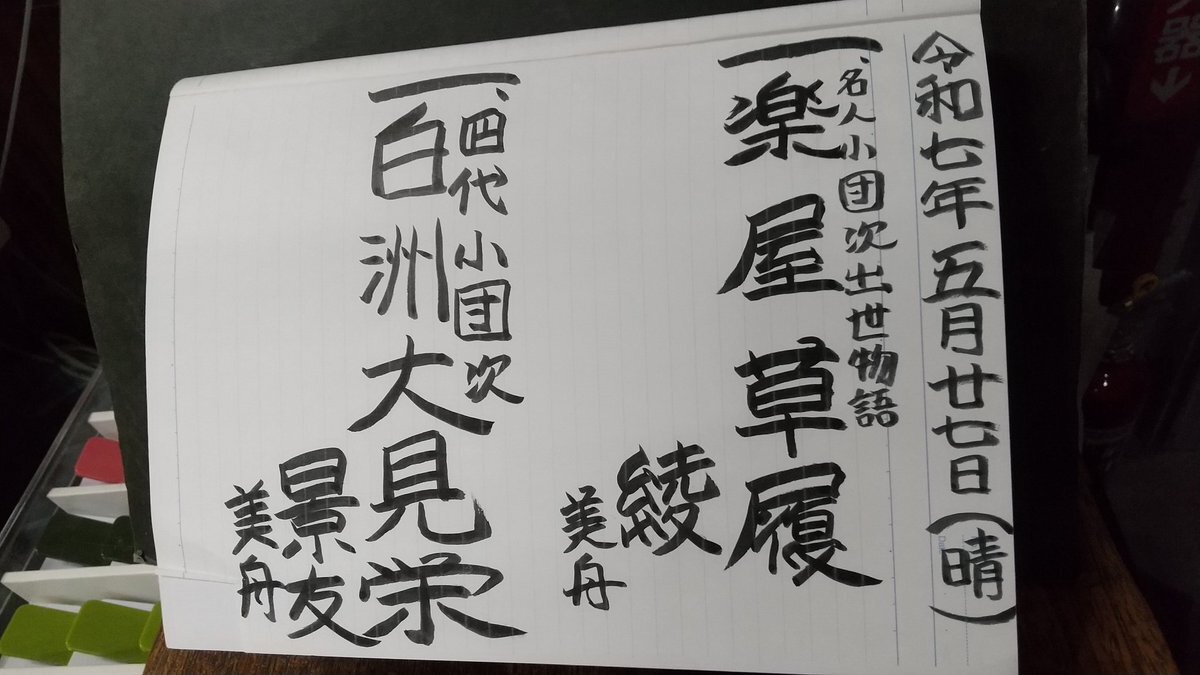 令和七年五月廿七日(晴)
一、名人小団次出世物語
楽屋草履
綾
美舟
一、四代小団次
白洲大見栄
景友
美舟
品↓